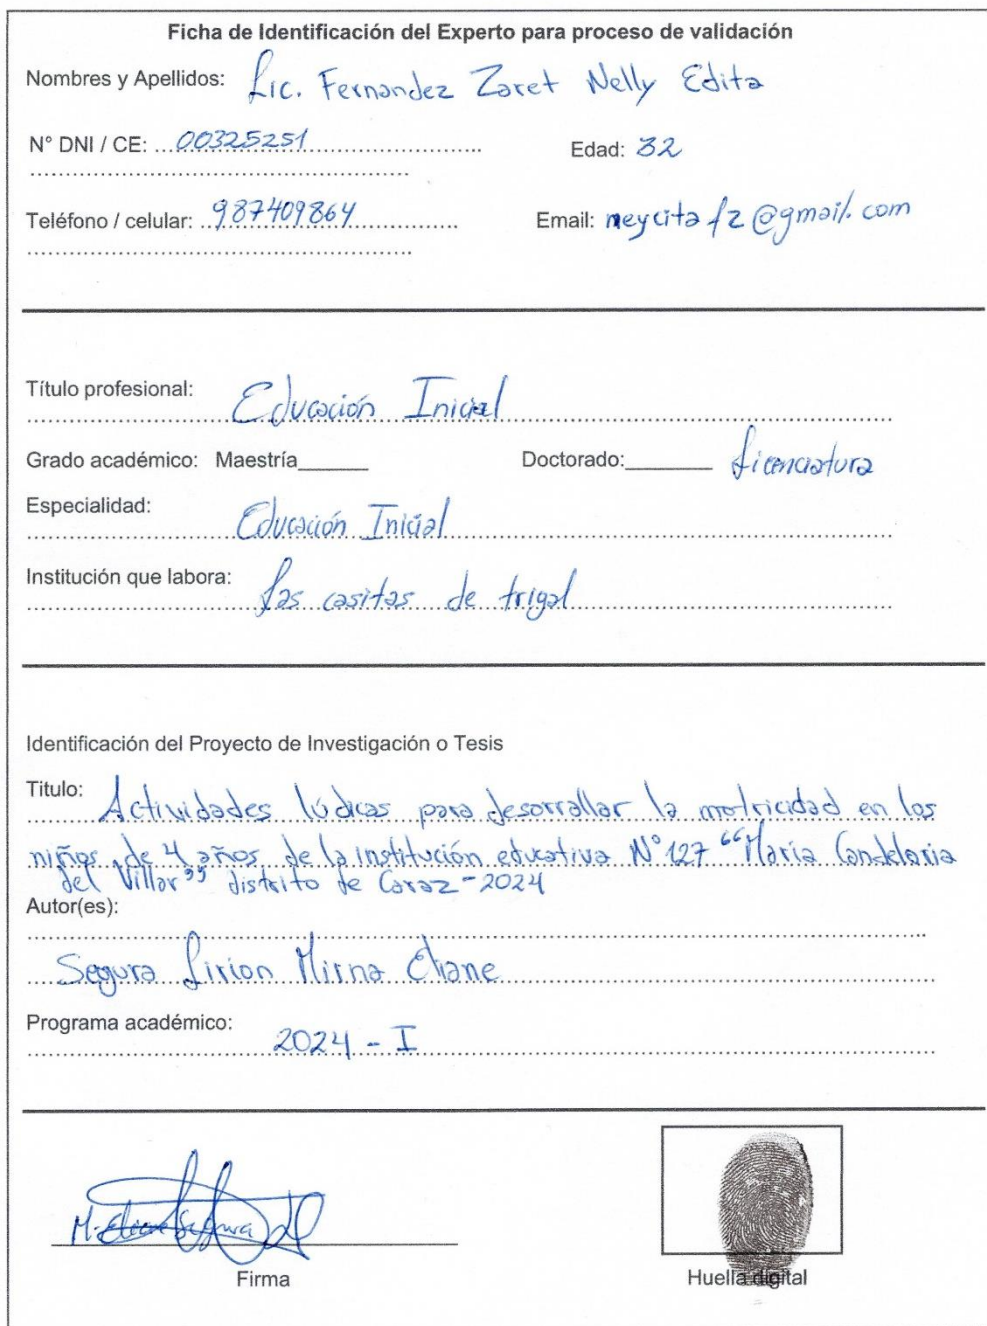 Ficha de Identificación del Experto para proceso de validación
Nombres y Apellidos: Lic. Fernandez Zaret Nelly Edita
N° DNI / CE: 00325251 Edad: 32
Teléfono / celular: 987409864 Email: neycitafz@gmail.com
Título profesional: Educación Inicial
Grado académico: Maestría______ Doctorado:_______ Licenciatura
Especialidad: Educación Inicial
Institución que labora: Las casitas de trigal
Identificación del Proyecto de Investigación o Tesis
Titulo: Actividades lúdicas para desorrallar la motricidad en los
niños de 4 años de la institución educativa N° 127 “María Candelaria
del Villar” distrito de Caraz - 2024
Autor(es):
Segura Lirion Mirna Eliane
Programa académico: 2024 - I
Firma
Huella digital